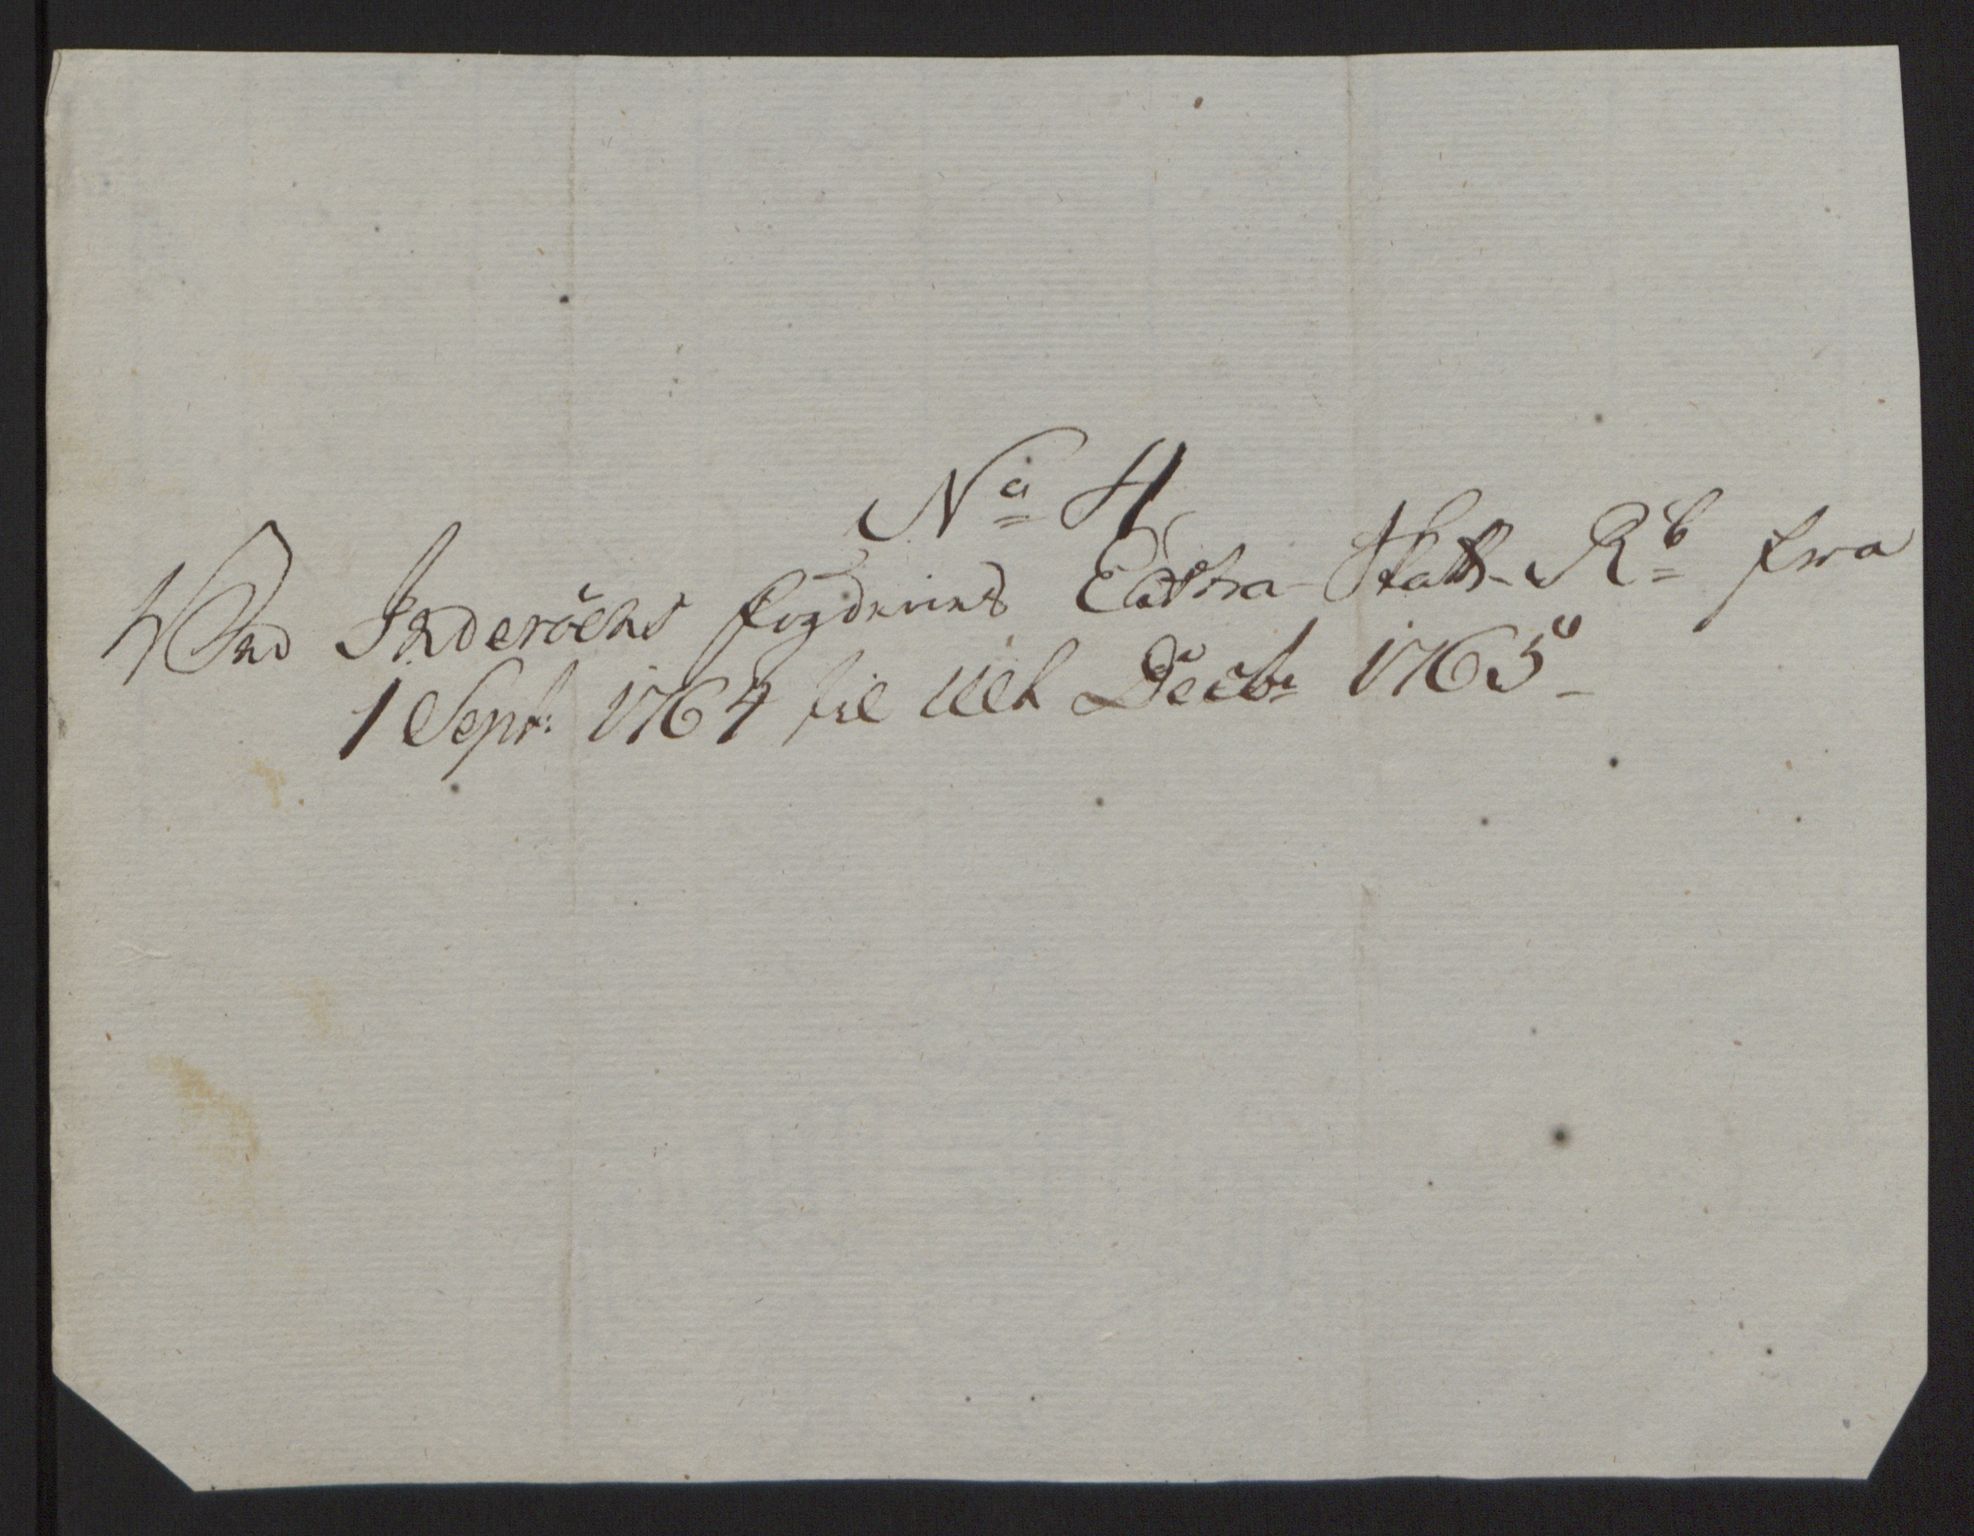 No 4
Ved Inderöens fogderies Extra-Skatt-Rb fra
1 Sept: 1764 til Ult Decbr 1765